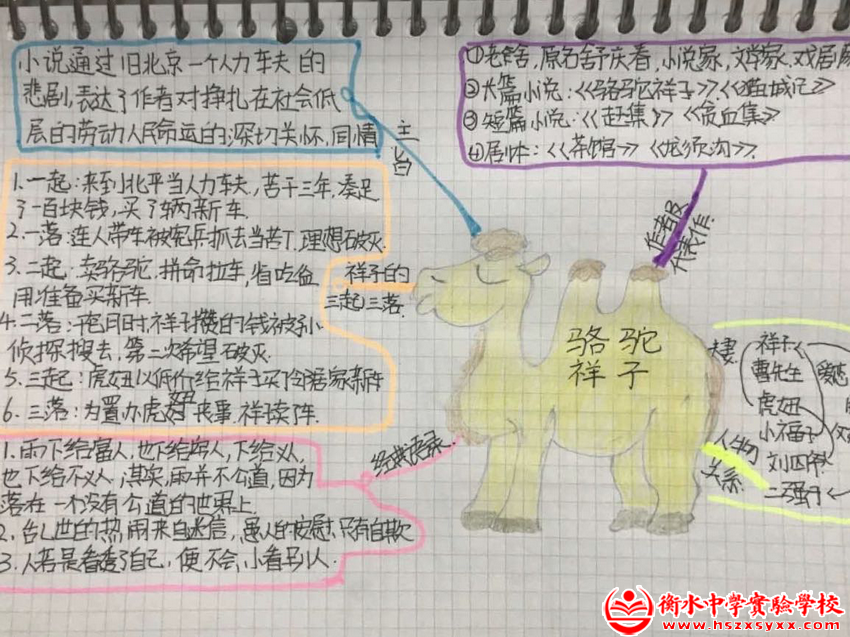 小说通过旧北京一个人力车夫的
悲剧,表达了作者对挣扎在社会低
层的劳动人民命运的深切关怀,同情
主旨
①老舍,原名舒庆春,小说家,文学家,戏剧家
②长篇小说:《骆驼祥子》.《猫城记》
③短篇小说:《赶集》《贫血集》
④剧本:《茶馆》《龙须沟》.
作者及
代表作.
1.一起:来到北平当人力车夫,苦干三年,凑足
了一百块钱,买了辆新车.
2.一落:连人带车被宪兵抓去当苦丁.理想破灭.
3.二起:卖骆驼,拼命拉车,省吃俭
用准备买新车.
4.二落:干包月时,祥子攒的钱被孙
侦探搜去,第二次希望破灭.
5.三起:虎妞以低价给祥子买了邻居家新车
6.三落:为置办虎妞丧事,祥子卖了车.
祥子的
三起三落.
骆驼
祥子
1.雨下给富人,也下给穷人,下给义人,
也下给不义人;其实,雨并不公道,因为
落在一个没有公道的世界上.
2.乱世的热闹来自迷信,愚人的安慰只有自欺
3.人若是看透了自己,便不会小看别人.
经典语录.
祥子
曹先生
虎妞
小福子
刘四爷
二强子
人物
关系.
衡水中學實驗學校
www.hszxsyxx.com